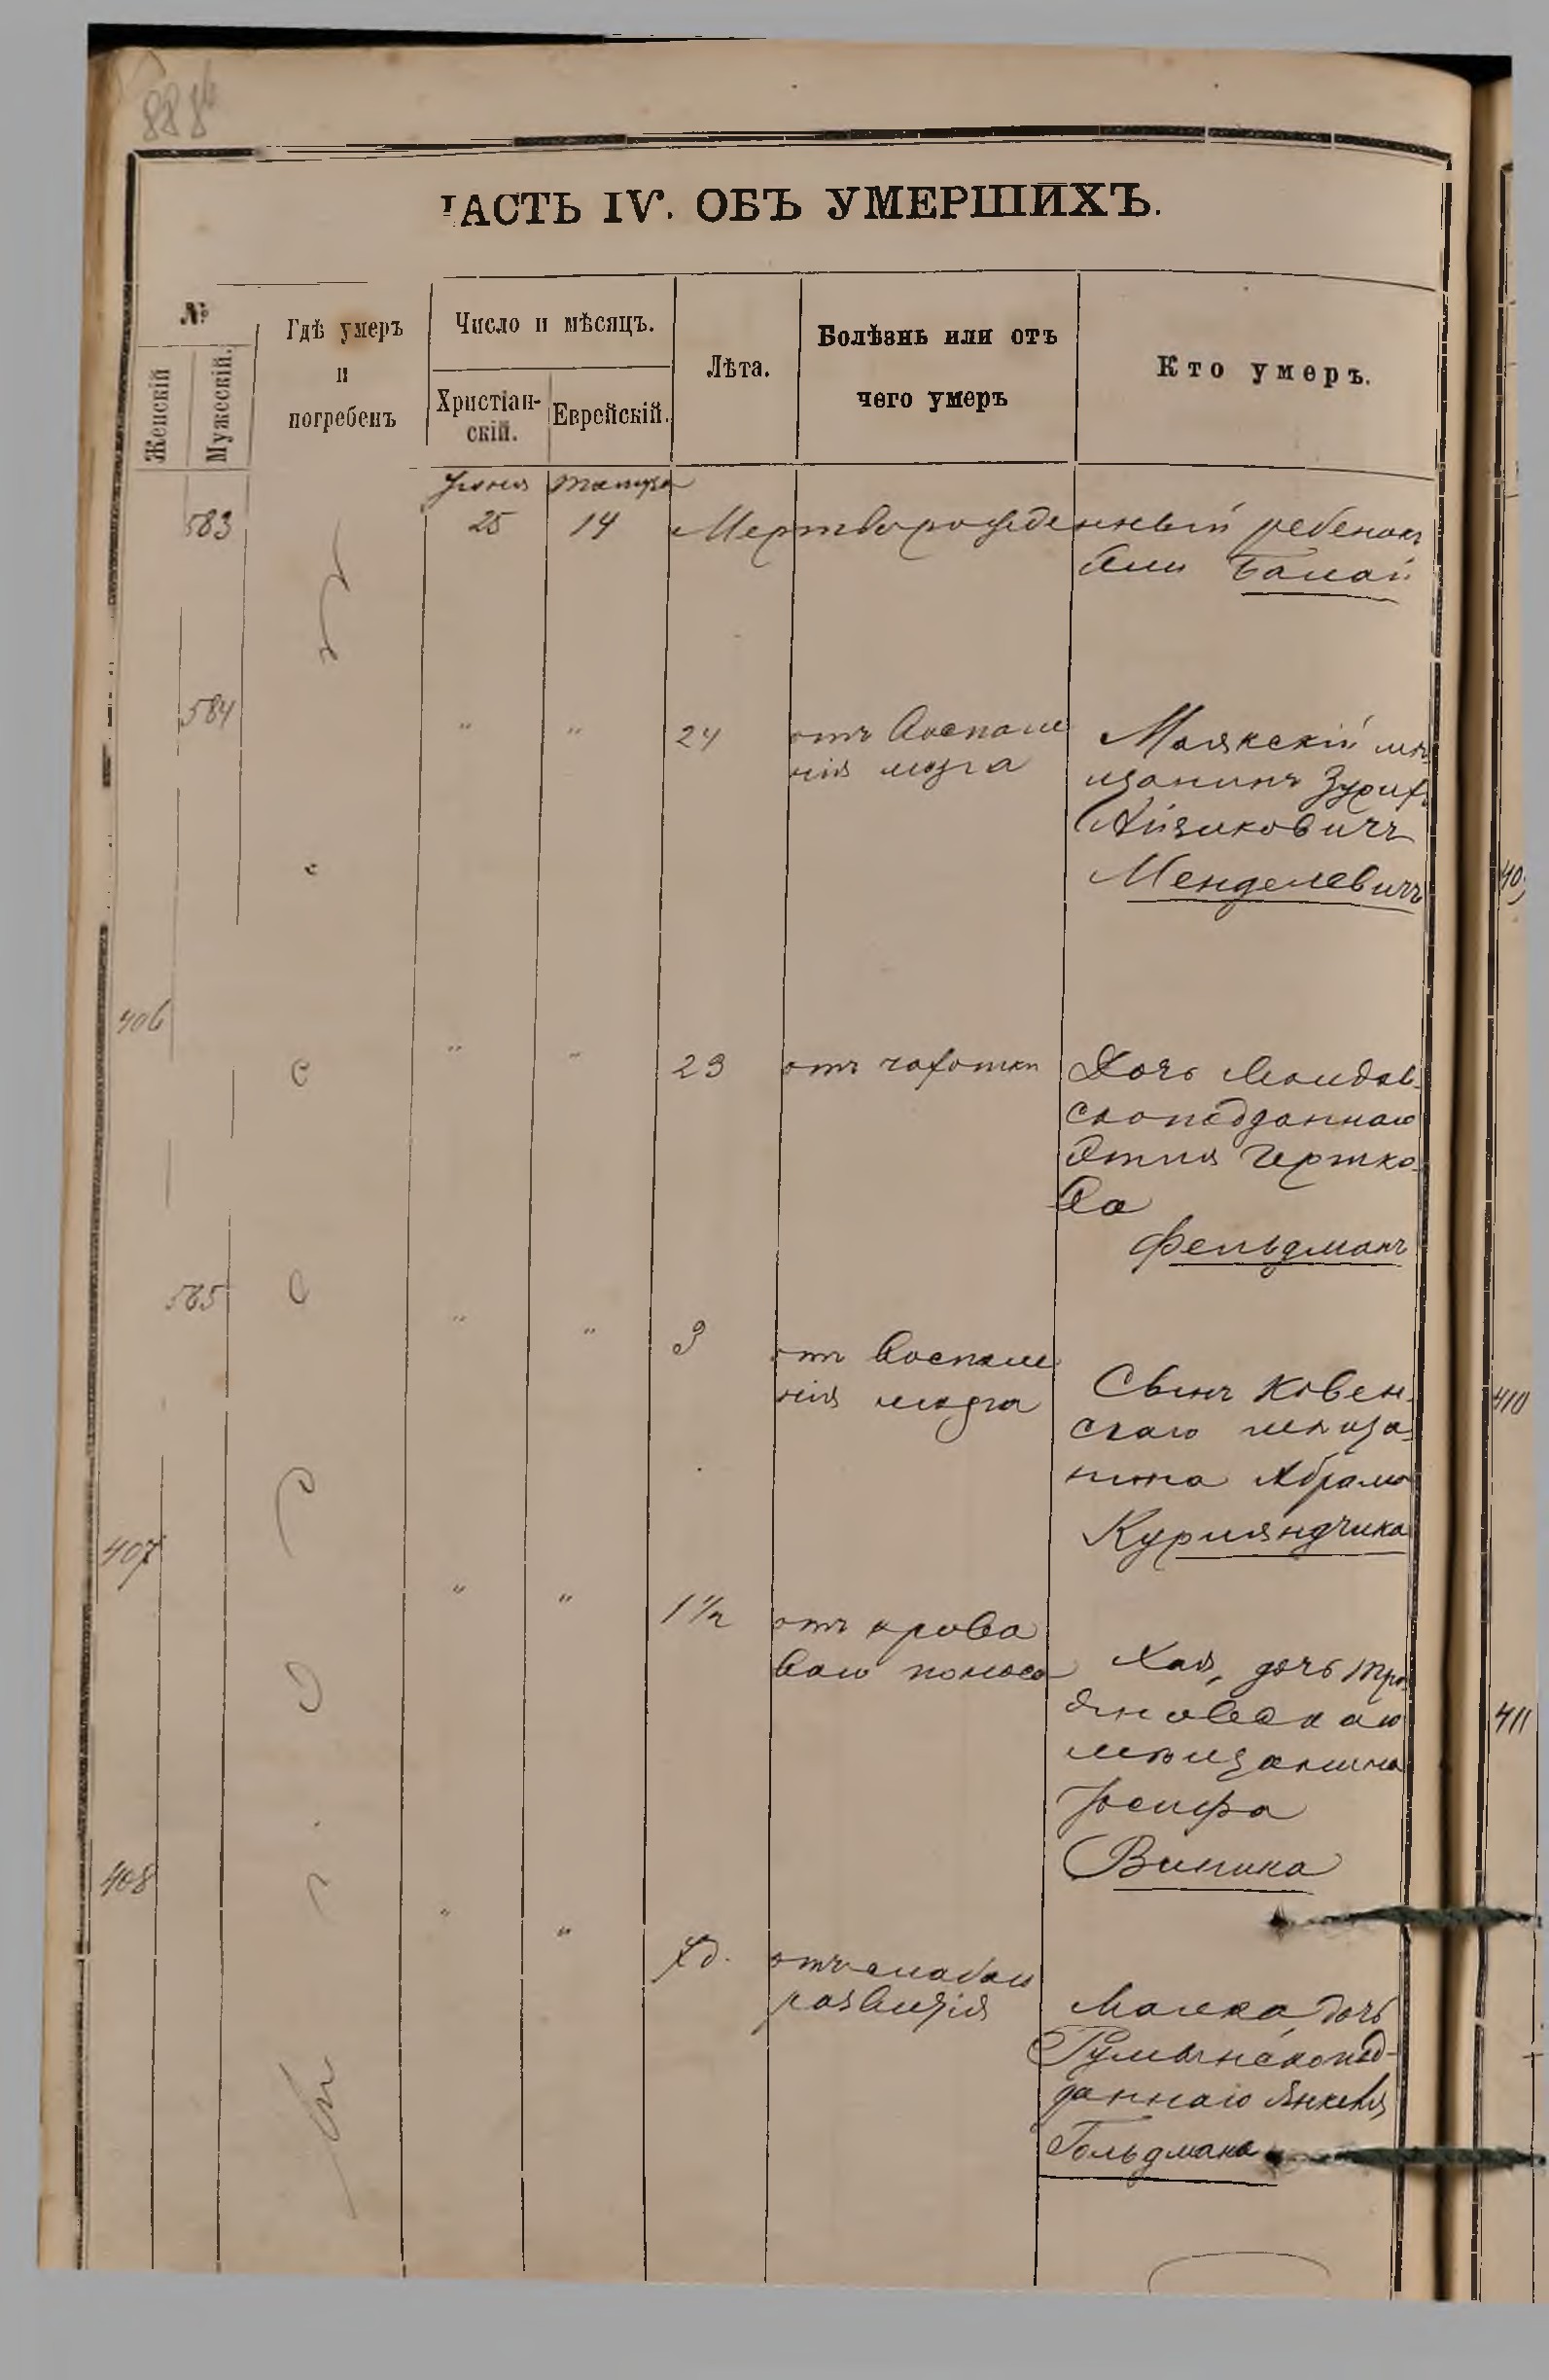 ЧАСТЬ IV. ОБЪ УМЕРШИХЪ.
№
Женскій
Мужескій.
Гдѣ умеръ
и
погребенъ
Число и мѣсяцъ.
Христіан-
скій.
Еврейскій.
Лѣта.
Болѣзнь или отъ
чего умеръ
Кто умеръ.
Іюня
583
25
14
Мертворожденный ребенокъ
584
"
"
24
отъ воспале
нія мозга
Маякскій мѣ
щанинъ
Айзиковичъ
Менделевичъ
406
"
"
23
отъ чахотки
Дочь Молдав-
скоподданнаго
Фельдманъ
585
"
"
3
отъ воспале
нія мозга
Сынъ Ковен-
скаго мѣща-
нина Абрама
Курляндчика
407
"
"
1 1/2
отъ крова
ваго поноса
Хая, дочь Тро-
яновскаго
мѣщанина
Іосифа
Виника
408
"
"
отъ слабаго
развитія
Малка, дочь
Румынскопод-
даннаго Янкеля
Гольдмана
410
411